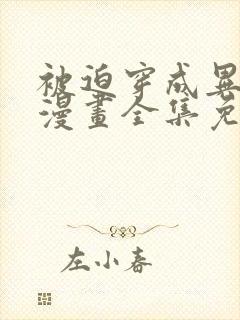 被迫穿成異
漫畫全集免
左小春